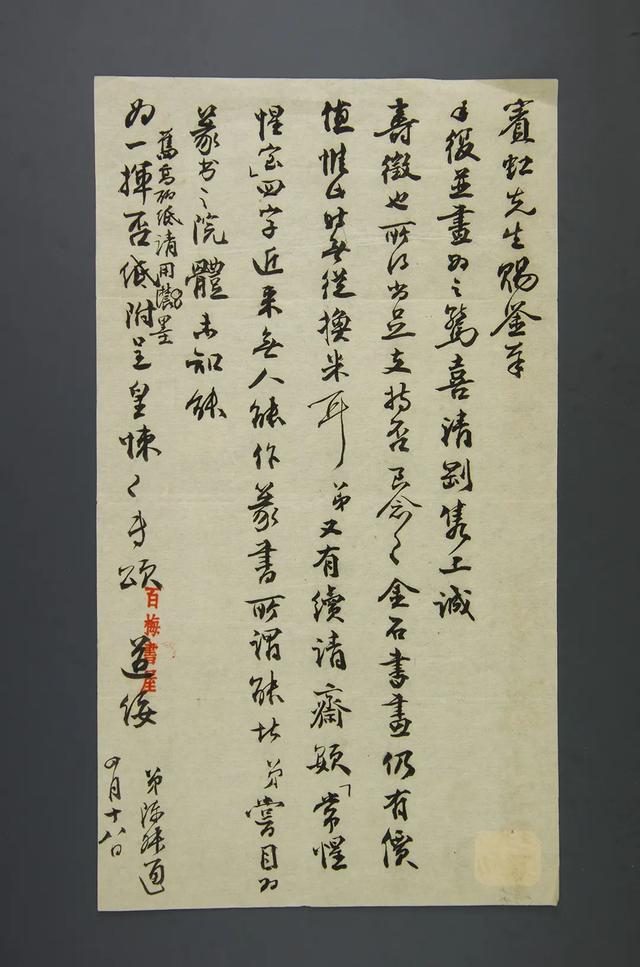 賓虹先生賜鑒奉
手復並畫為之驚喜清剛雋上誠
壽徵也所得尚足支持否至念々金石書畫仍有價
值惟此時無從換米耳弟又有續請齋額「常惺
惺室」四字近來無人能作篆書所謂能者弟嘗目為
篆書之院體未知能
為一揮否紙附呈皇悚々專頌 道綏
舊高丽紙請用濃墨
弟陳叔通
四月十八日
百梅書屋